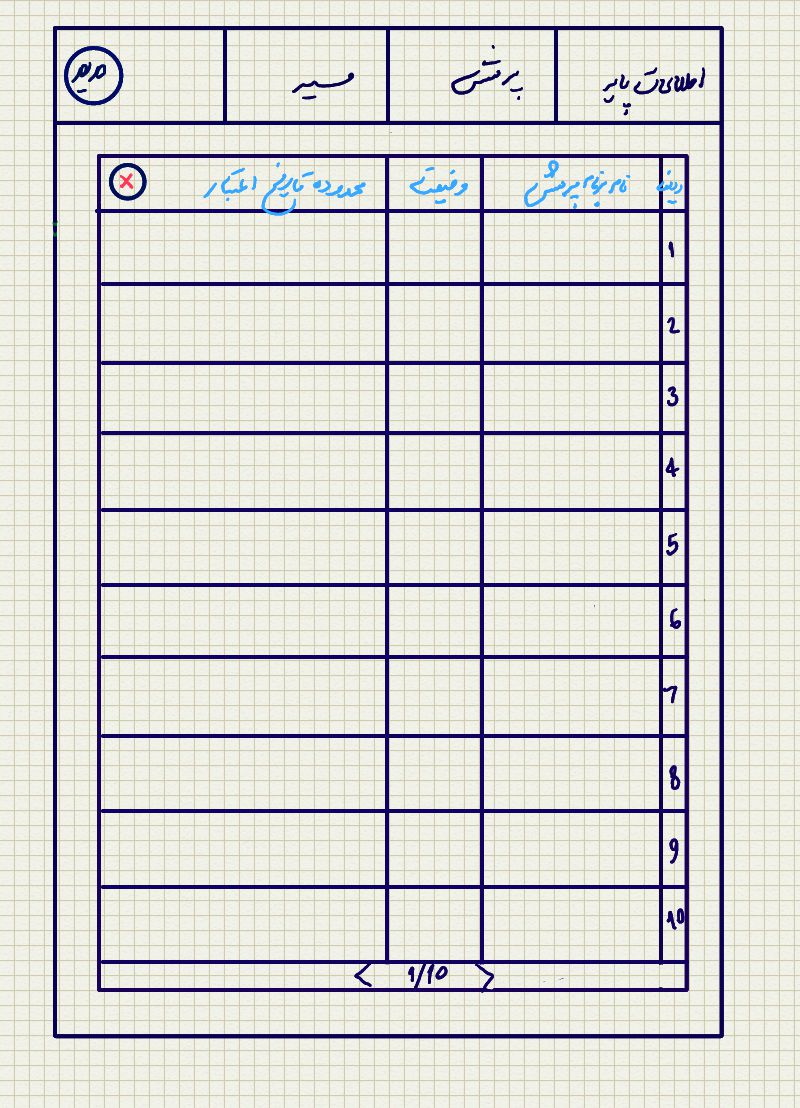 اطلاعات پایه پرمش مسیر مدیر
ردیف نام برنامه پرمش وضعیت محدوده تاریخ اعتبار ×
1
2
3
4
5
6
7
8
9
10
< 1/10 >